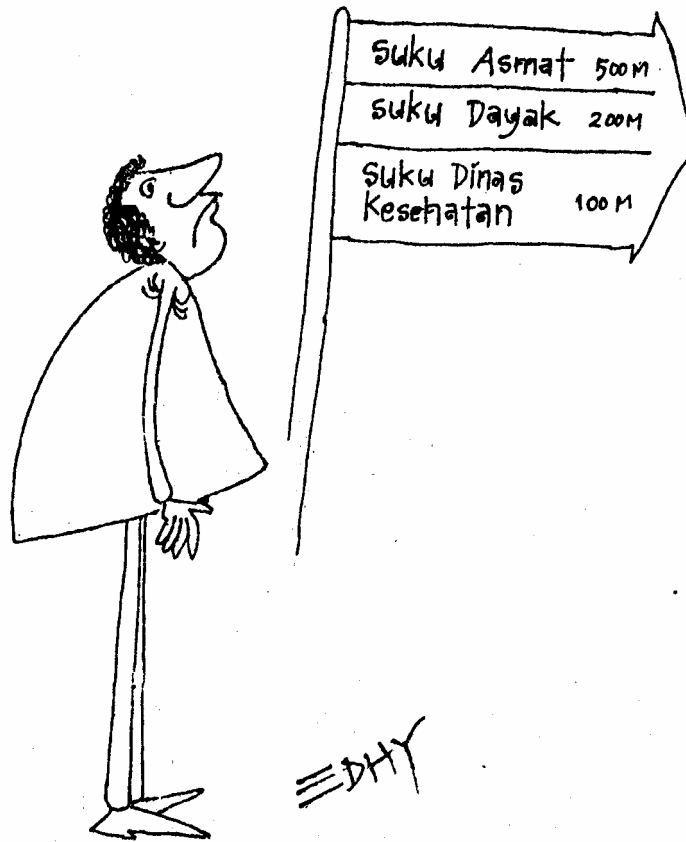 Suku Asmat 500 M
Suku Dayak 200 M
Suku Dinas
Kesehatan 100 M
EDHY